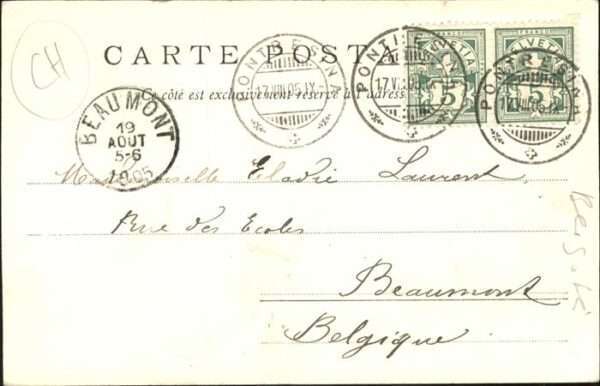 CH
CARTE POSTALE
Ce côté est exclusivement réservé à l'adresse
PONTRESINA
17.VIII.05.IX
PONTRESINA
17.VIII.05.IX
PONTRESINA
17.VIII.05.IX
FRANCO
HELVETIA
5
FRANCO
HELVETIA
5
BEAUMONT
19
AOUT
5-6
1905
Mademoiselle Eladie Laurent
Rue des Ecoles
Beaumont
Belgique